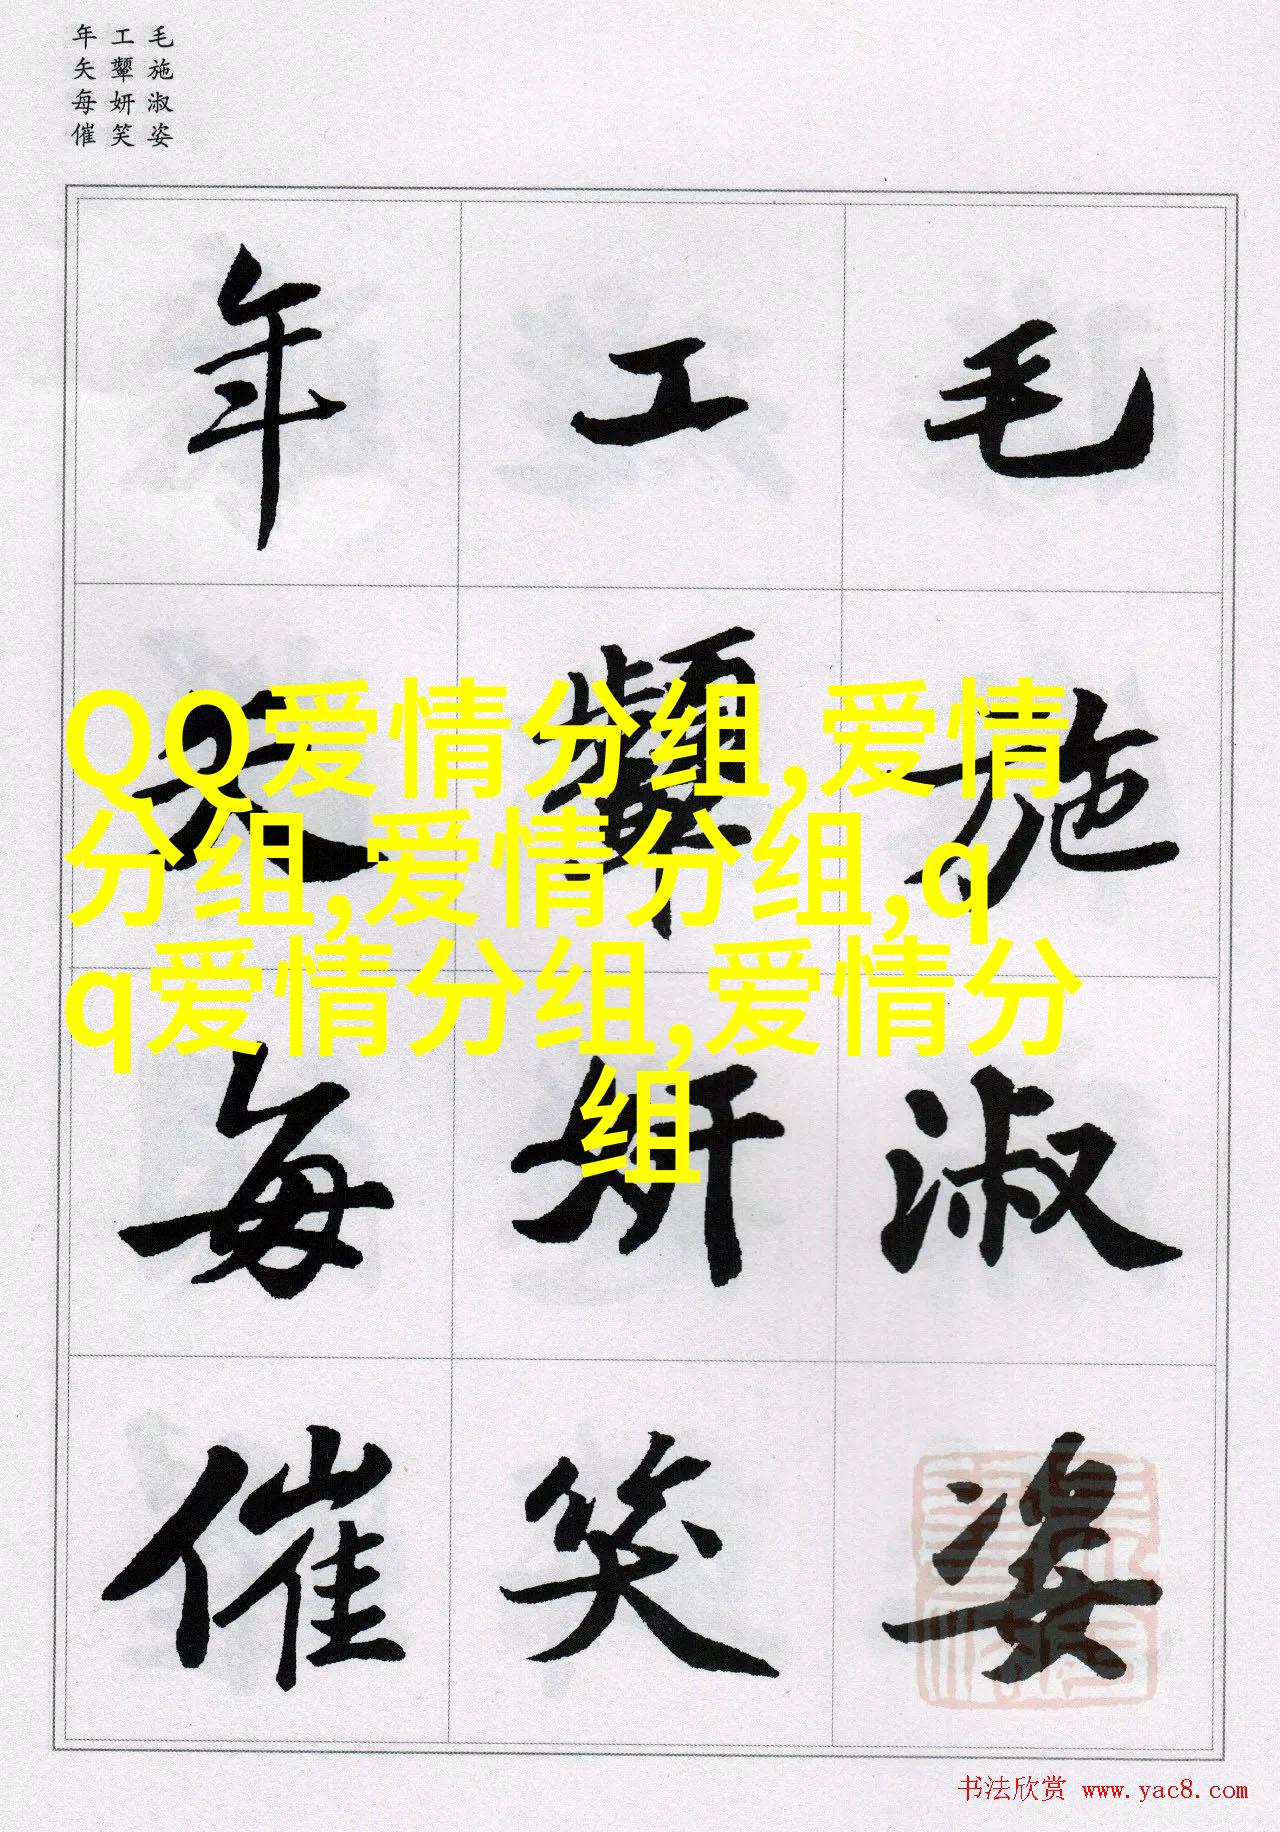 年工毛
矢颦施
每妍淑
催笑姿
年工毛
矢颦施
每妍淑
催笑姿
QQ爱情分组,爱情
分组,爱情分组,q
q爱情分组,爱情分
组
书法欣赏 www.yac8.com